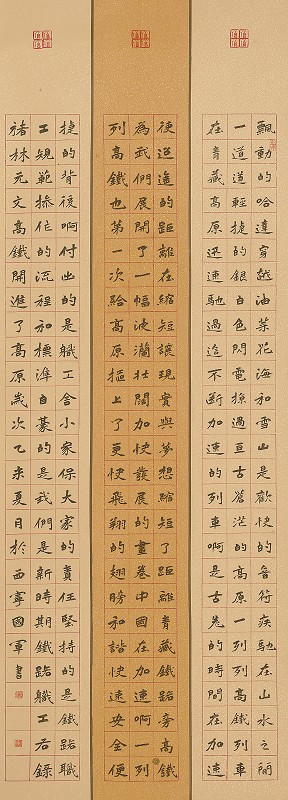 飄動的哈達穿越油菜花海和雪山是歡快的音符疾馳在山水之間
一道道輕捷的銀白色閃電掠過亘古蒼茫的高原高鐵列車
在青藏高原迅速馳過這不斷加速的列車啊是古老的時間在加速
使遙遠的距離在縮短讓現實與夢想縮短了距離青藏鐵路乘高鐵
為我們展開了一幅波瀾壯闊加快發展的畫卷中國在加速啊一列
列高鐵也第一次給高原插上了更快飛翔的翅膀和諧快速安全便
捷的背後啊付出的是職工舍小家保大家的責任堅持的是鐵路職
工規範操作的流程和標準自豪的是我們是新時期鐵路職工右錄
褚林元文高鐵開進了高原歲次乙未夏月於西寧國軍書